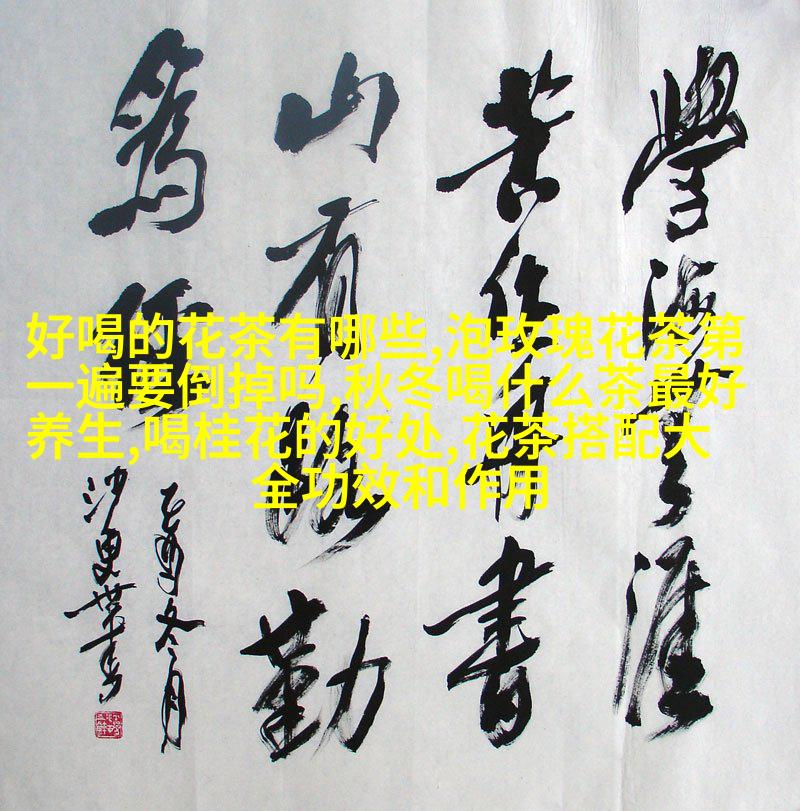 學海無涯
苦作舟書
山有路勤
為徑
乙酉冬月
好喝的花茶有哪些,泡玫瑰花茶第
一遍要倒掉吗,秋冬喝什么茶最好
养生,喝桂花的好处,花茶搭配大
全功效和作用